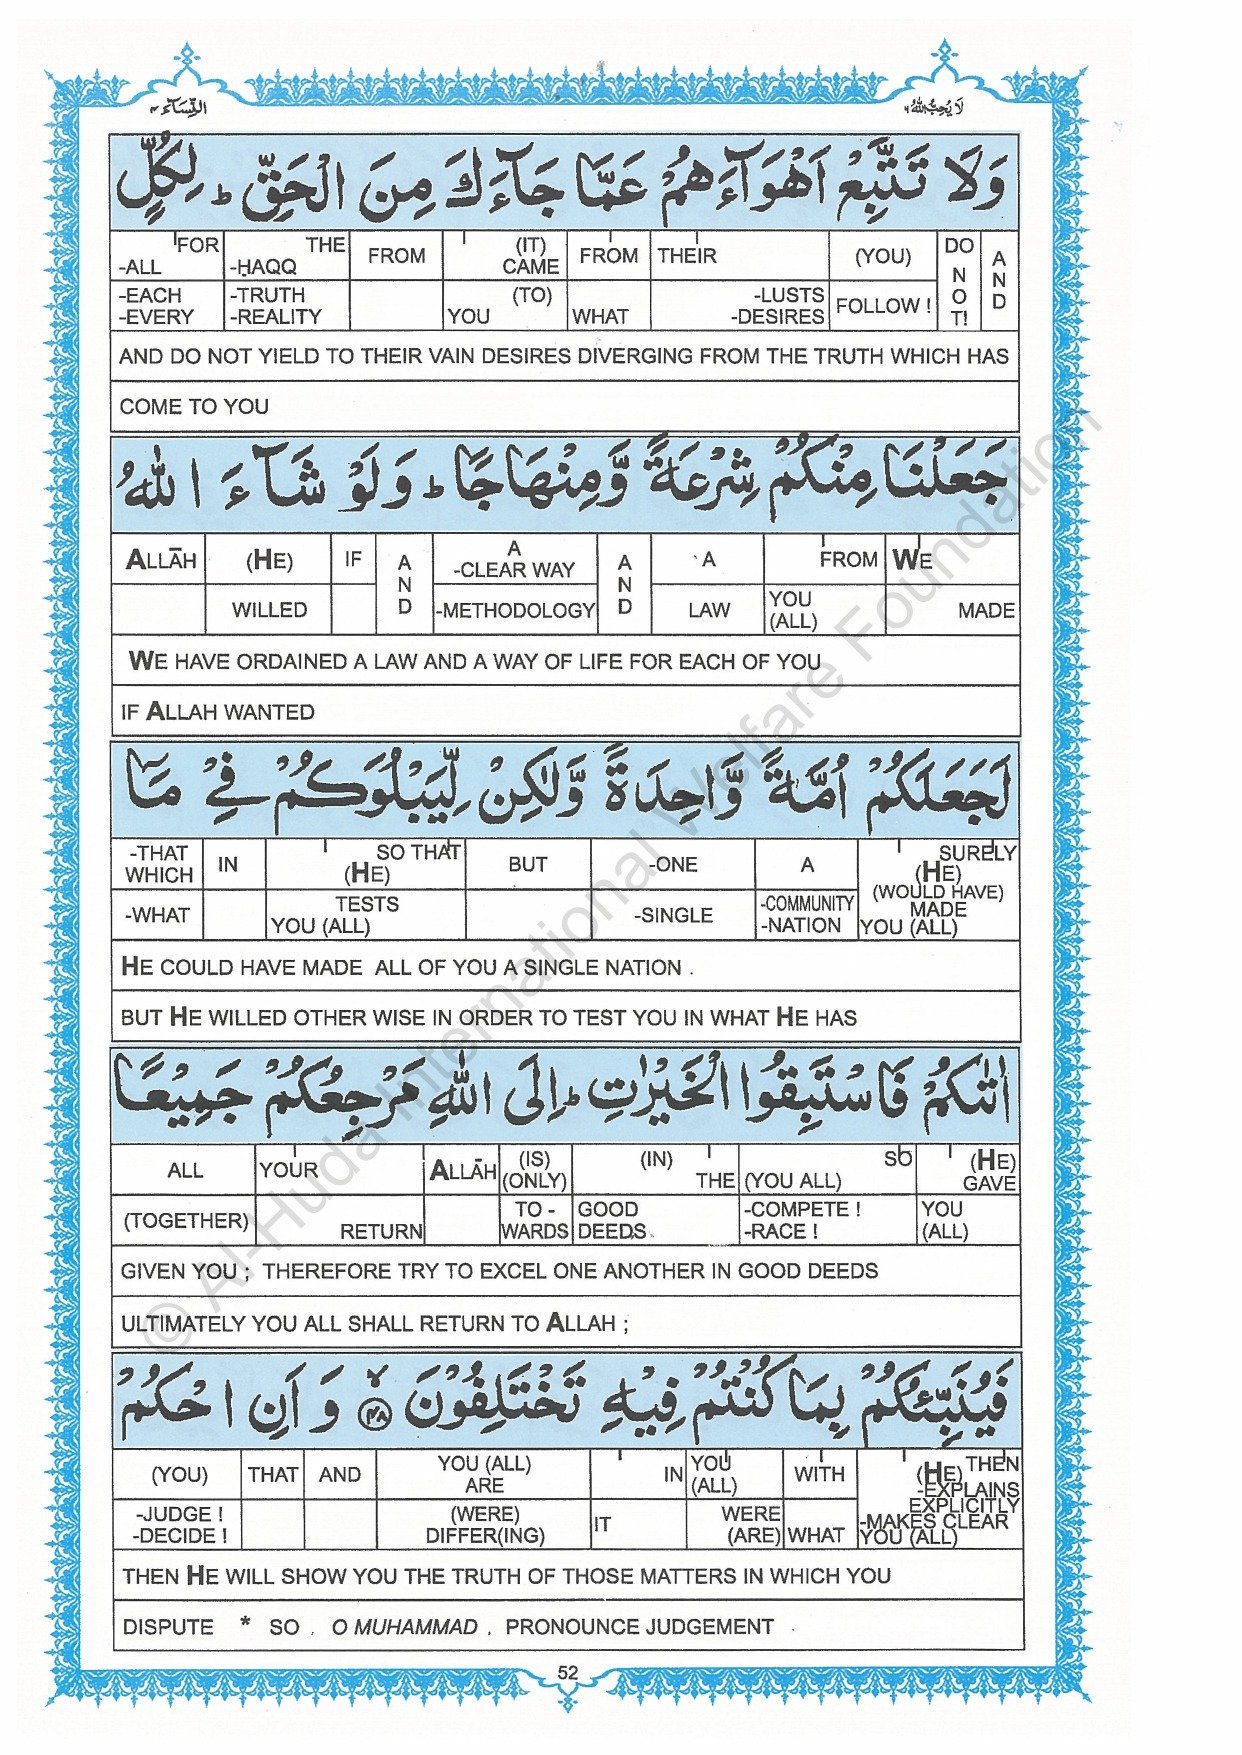 النِّسَآء ٤
لَا يُحِبُّ اللهُ ٦
وَلَا تَتَّبِعْ اَهْوَآءَهُمْ عَمَّا جَآءَكَ مِنَ الْحَقِّ ؕ لِكُلٍّ
FOR THE FROM (IT) FROM THEIR (YOU) DO NOT! AND
-ALL -ḤAQQ CAME
-EACH -TRUTH (TO) -LUSTS FOLLOW !
-EVERY -REALITY YOU WHAT -DESIRES
AND DO NOT YIELD TO THEIR VAIN DESIRES DIVERGING FROM THE TRUTH WHICH HAS
COME TO YOU
جَعَلْنَا مِنْكُمْ شِرْعَةً وَّمِنْهَاجًا ؕ وَلَوْ شَآءَ اللهُ
ALLĀH (HE) IF AND A AND A FROM WE
-CLEAR WAY
WILLED -METHODOLOGY LAW YOU MADE
(ALL)
WE HAVE ORDAINED A LAW AND A WAY OF LIFE FOR EACH OF YOU
IF ALLAH WANTED
لَجَعَلَكُمْ اُمَّةً وَّاحِدَةً وَّلٰكِنْ لِّيَبْلُوَكُمْ فِيْ مَآ
-THAT IN SO THAT BUT -ONE A SURELY
WHICH (HE) (HE)
(WOULD HAVE)
-WHAT TESTS -SINGLE -COMMUNITY MADE
YOU (ALL) -NATION YOU (ALL)
HE COULD HAVE MADE ALL OF YOU A SINGLE NATION .
BUT HE WILLED OTHER WISE IN ORDER TO TEST YOU IN WHAT HE HAS
اٰتٰىكُمْ فَاسْتَبِقُوا الْخَيْرٰتِ ؕ اِلَى اللهِ مَرْجِعُكُمْ جَمِيْعًا
ALL YOUR ALLĀH (IS) (IN) SO (HE)
(ONLY) THE (YOU ALL) GAVE
(TOGETHER) TO - GOOD -COMPETE ! YOU
RETURN WARDS DEEDS -RACE ! (ALL)
GIVEN YOU ; THEREFORE TRY TO EXCEL ONE ANOTHER IN GOOD DEEDS
ULTIMATELY YOU ALL SHALL RETURN TO ALLAH ;
فَيُنَبِّئُكُمْ بِمَا كُنْتُمْ فِيْهِ تَخْتَلِفُوْنَ ۙ ٤٨ وَاَنِ احْكُمْ
(YOU) THAT AND YOU (ALL) IN YOU WITH THEN
ARE (ALL) (HE)
-EXPLAINS
-JUDGE ! (WERE) IT WERE EXPLICITLY
-DECIDE ! DIFFER(ING) (ARE) WHAT -MAKES CLEAR
YOU (ALL)
THEN HE WILL SHOW YOU THE TRUTH OF THOSE MATTERS IN WHICH YOU
DISPUTE * SO , O MUHAMMAD , PRONOUNCE JUDGEMENT
52
© Al-Huda International Welfare Foundation